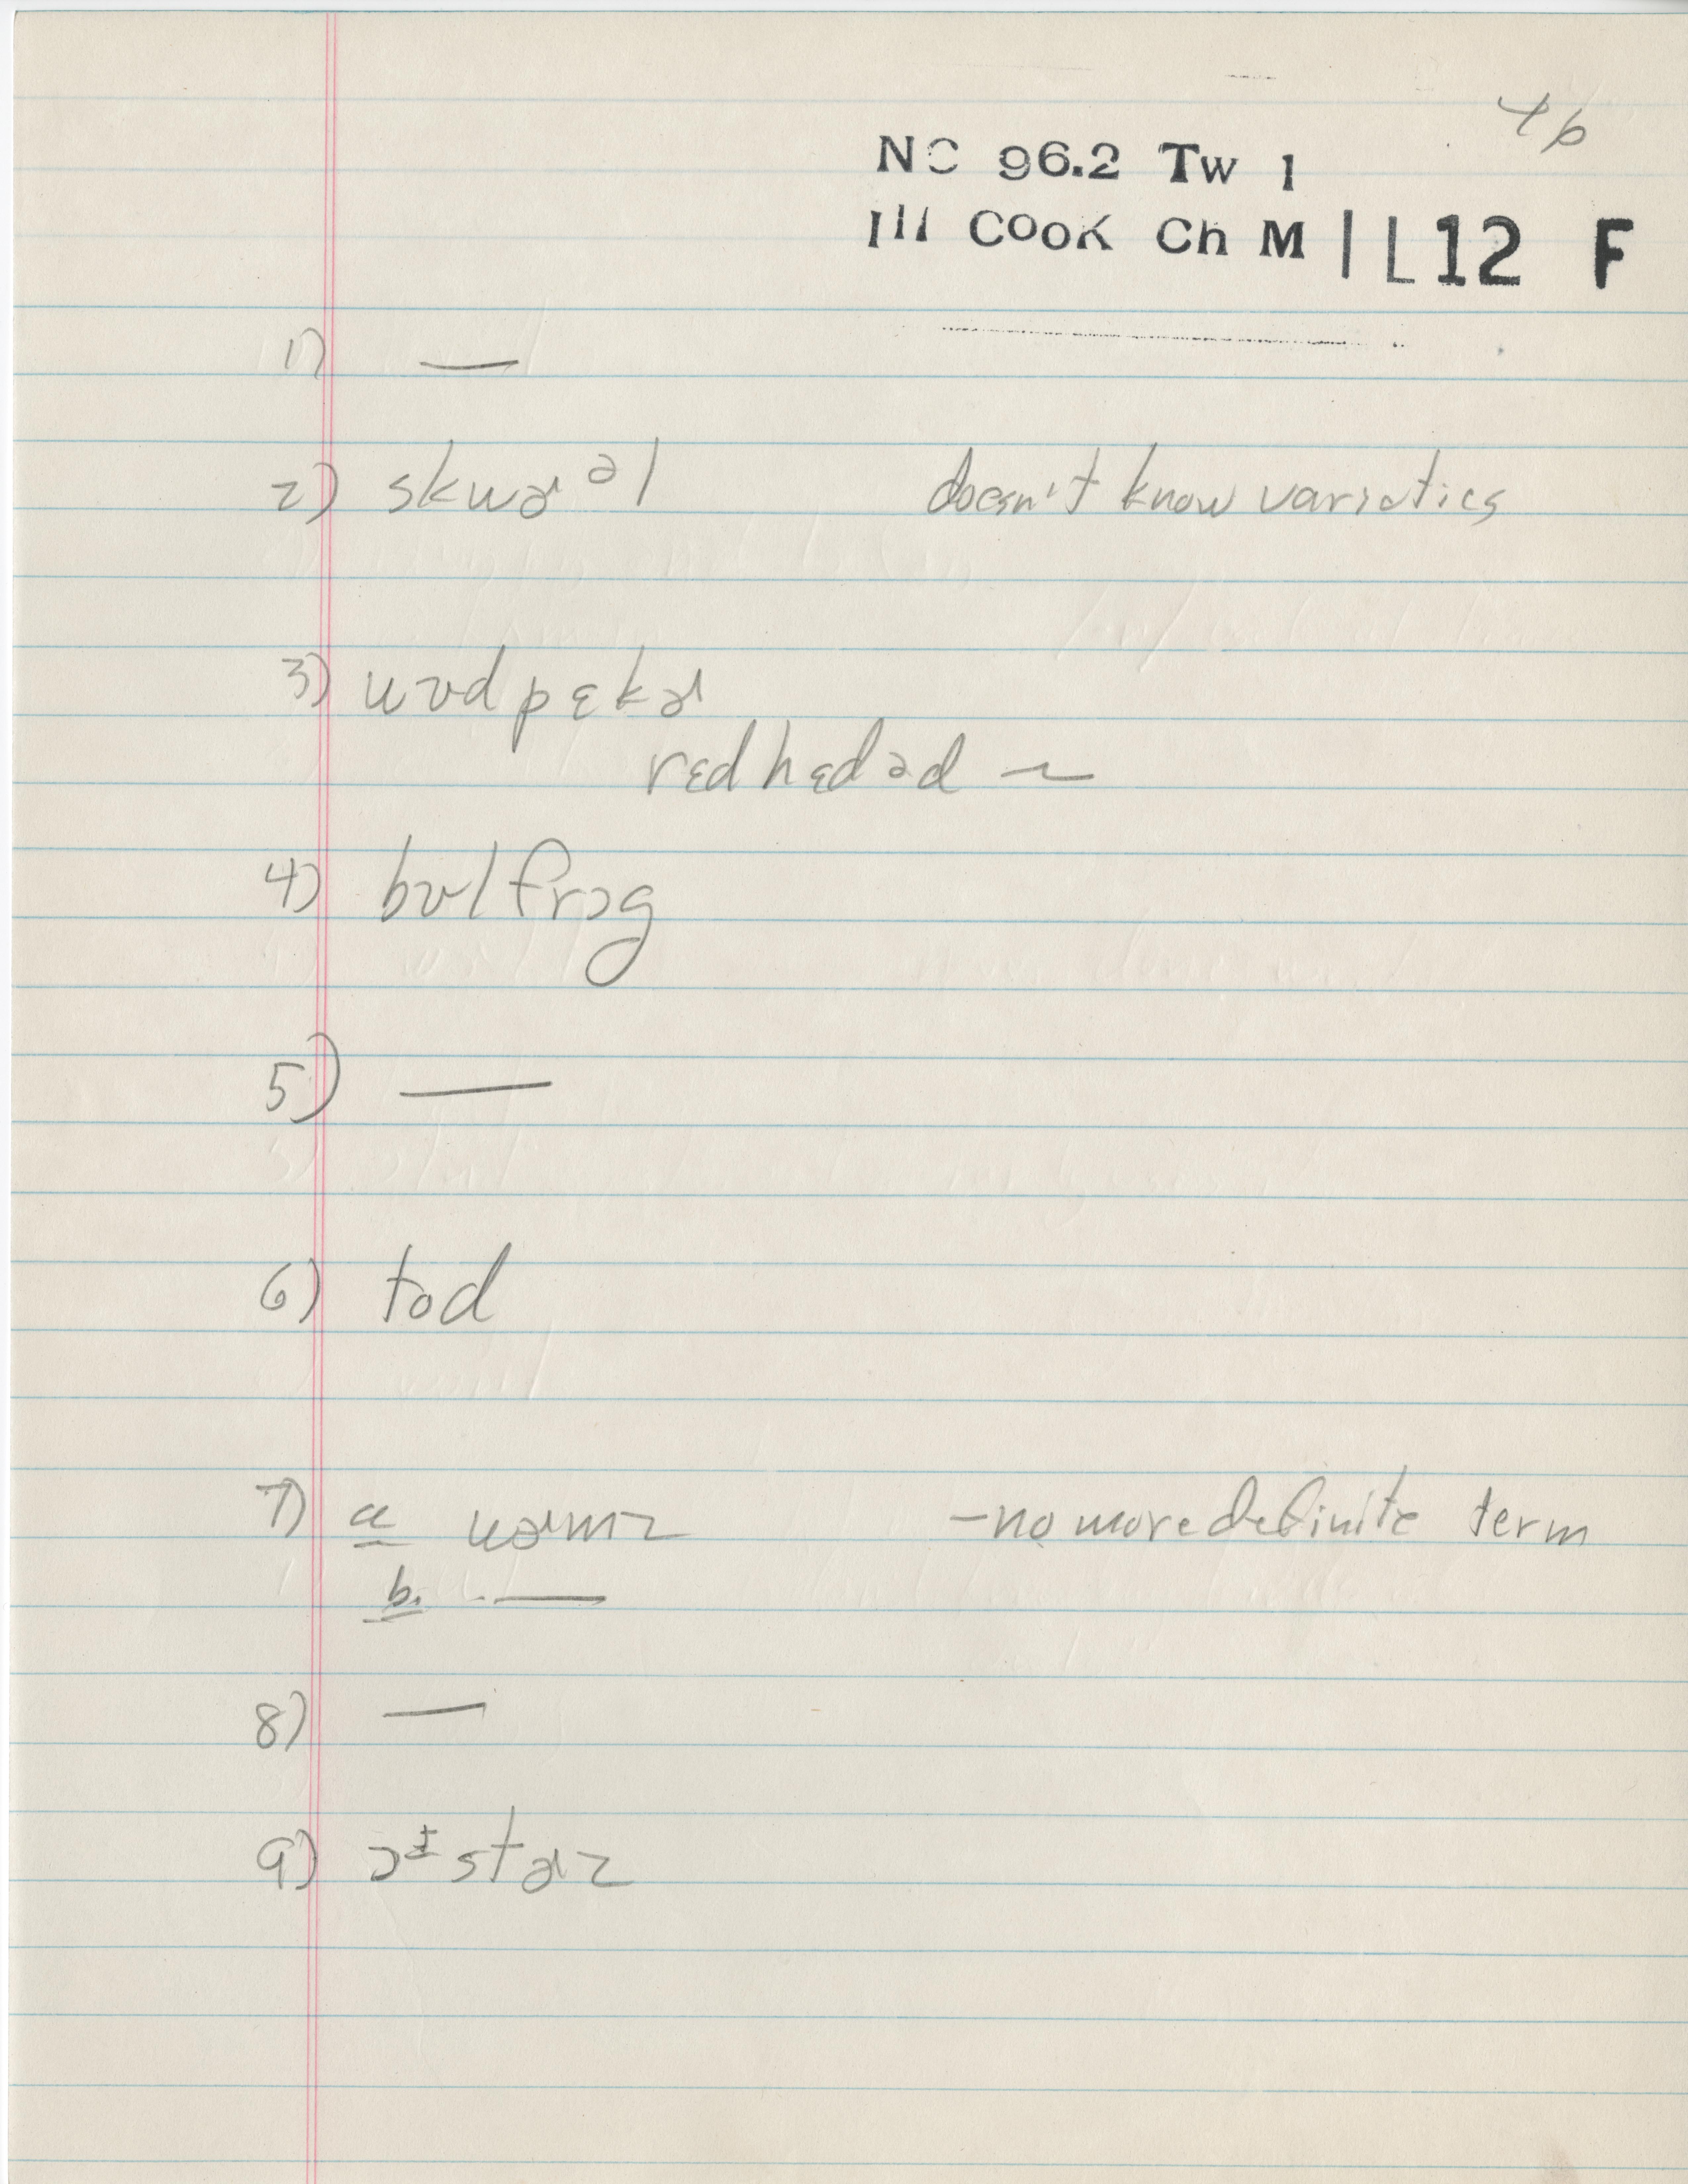 46
NC 96.2 Tw 1
Ill Cook Ch M | L12 F
1) —
2) skwɚᵊl doesn't know varieties
3) wʊdpɛkɚ
rɛdhɛdəd ~
4) bʊlfrɔg
5) —
6) tod
7) a wɚmz -no more definite term
b. —
8) —
9) ɔᶤstɚz